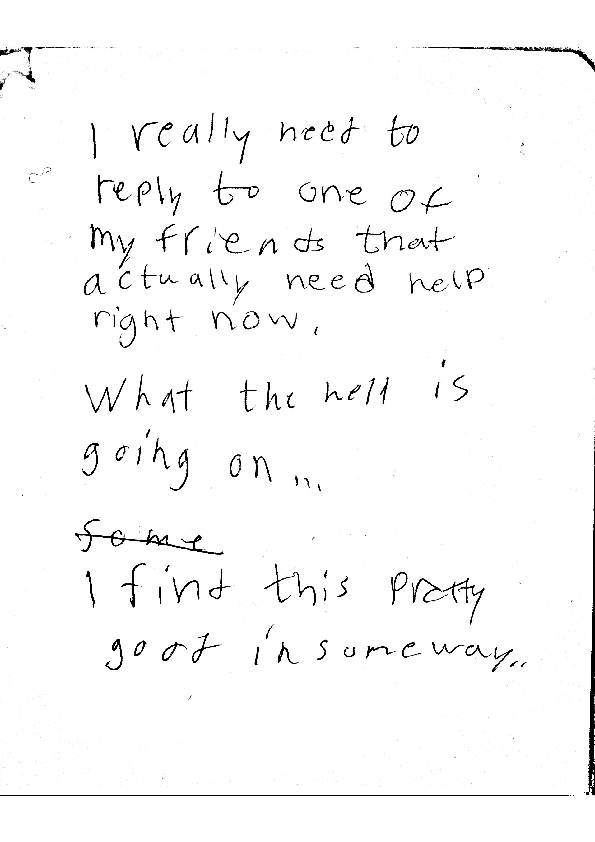 I really need to
reply to one of
my friends that
actually need help
right now.
What the hell is
going on...
some
I find this pretty
good in someway..